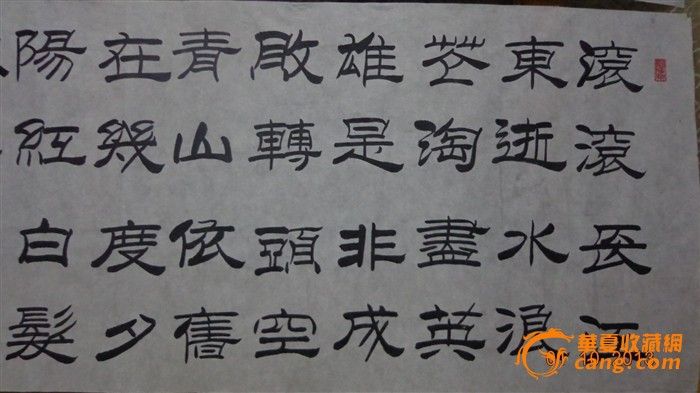 滾滾長江
東逝水浪
花淘盡英
雄是非成
敗轉頭空
青山依舊
在幾度夕
陽紅白髮
華夏收藏網
cang.com
10 2013